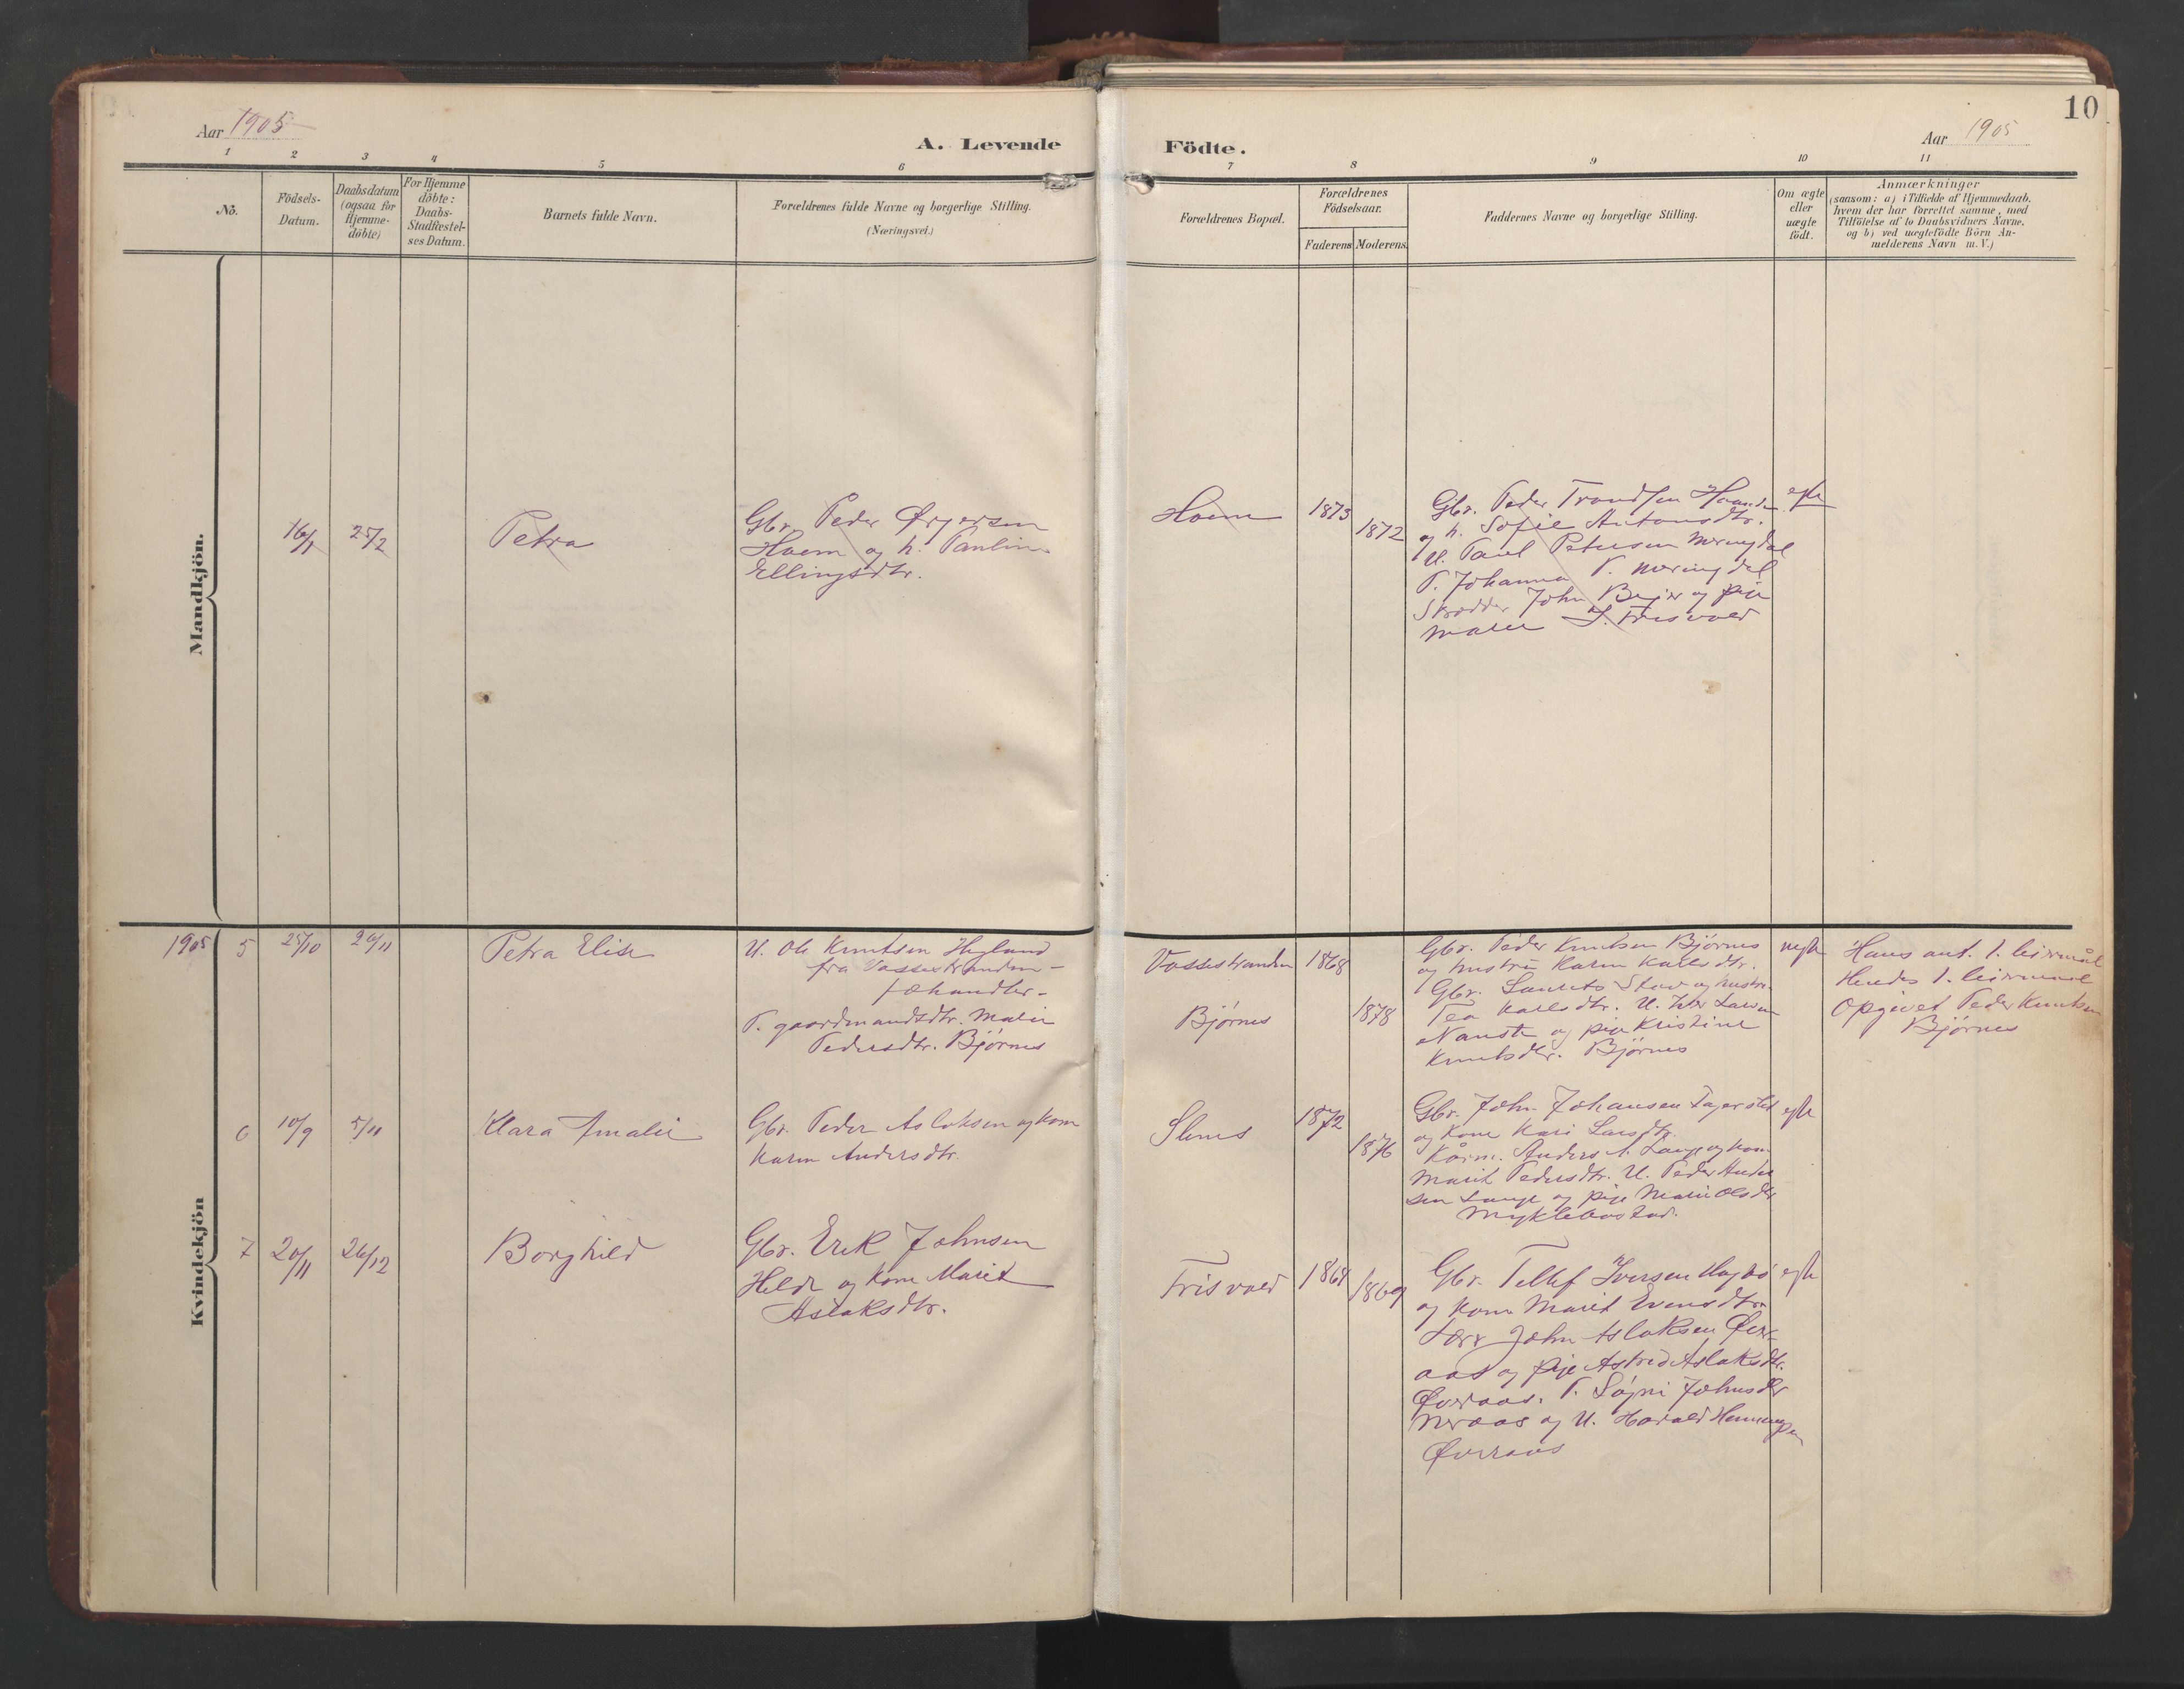 10
Aar 1905
A. Levende
Födte.
Aar 1905
1 2 3 4 5 6 7 8 9 10 11
No.
Födsels-
Datum.
Daabsdatum
(ogsaa for
Hjemme-
döbte)
For Hjemme
döbte:
Daabs-
Stadfæstel-
ses Datum.
Barnets fulde Navn.
Forældrenes fulde Navne og borgerlige Stilling.
(Næringsvei.)
Forældrenes Bopæl.
Forældrenes
Födselsaar.
Faderens Moderens
Faddernes Navne og borgerlige Stilling.
Om ægte
eller
uægte
födt.
Anmærkninger
(saasom: a) i Tilfælde af Hjemmedaab,
hvem der har forrettet samme, med
Tilföielse af to Daabsvidners Navne,
og b) ved uægtefödte Börn An-
melderens Navn m. V.)
Mandkjön.
16/1 25/2
Petra
Gbr. Peder
Hoem og h. Paulin
Ellingsdtr.
Hoem
1873
1872
Gbr. Peder Trondsen
og h. Sofie Antonsdtr.
U. Paul Petersen Meringdal
P. Johanna P. Meringdal
Skrædder John og pige
Malie Frisvold
egte
Kvindekjön
1905
5 25/10 26/11
Petra Elise
U. Ole Knutsen Hegland
fra Vossestranden -
fæhandler -
P. gaardmandsdtr. Malie
Pedersdtr. Björnes
Vossestranden
Björnes
1868
1878
Gbr. Peder Knutsen Björnes
og hustru Karen Karlsdtr.
Gbr. Laurits og hustru
Tea Karlsdtr. U. Larsen
og pige Kristine
Knutsdtr. Björnes
uegte
Hans ant. 1. leirmål
Hendes 1. leirmaal
Opgivet Peder Knutsen
Björnes
6 10/9 5/11
Klara Amalie
Gbr. Peder Aslaksen og kone
Karen Andersdtr.
Slems
1872
1876
Gbr. John Johansen
og kone Kari Larsdtr.
Anders A. Lange og kone
Marit Pedersdtr. U. Peder Ander
sen Lange og pige Marie Olsdtr
Myklebostad.
egte
7 20/11 26/12
Borghild
Gbr. Erik Johnsen
Helde og kone Marit
Aslaksdtr.
Frisvold
1864
1869
Gbr. Tellef Iversen
og kone Marit Evensdtr.
Lærer John Aslaksen Øver-
aas og pige Astrid Aslaksdtr.
Øveraas. P. Johnsdtr
Neraas og U. Harald Henningsen
Øveraas
egte